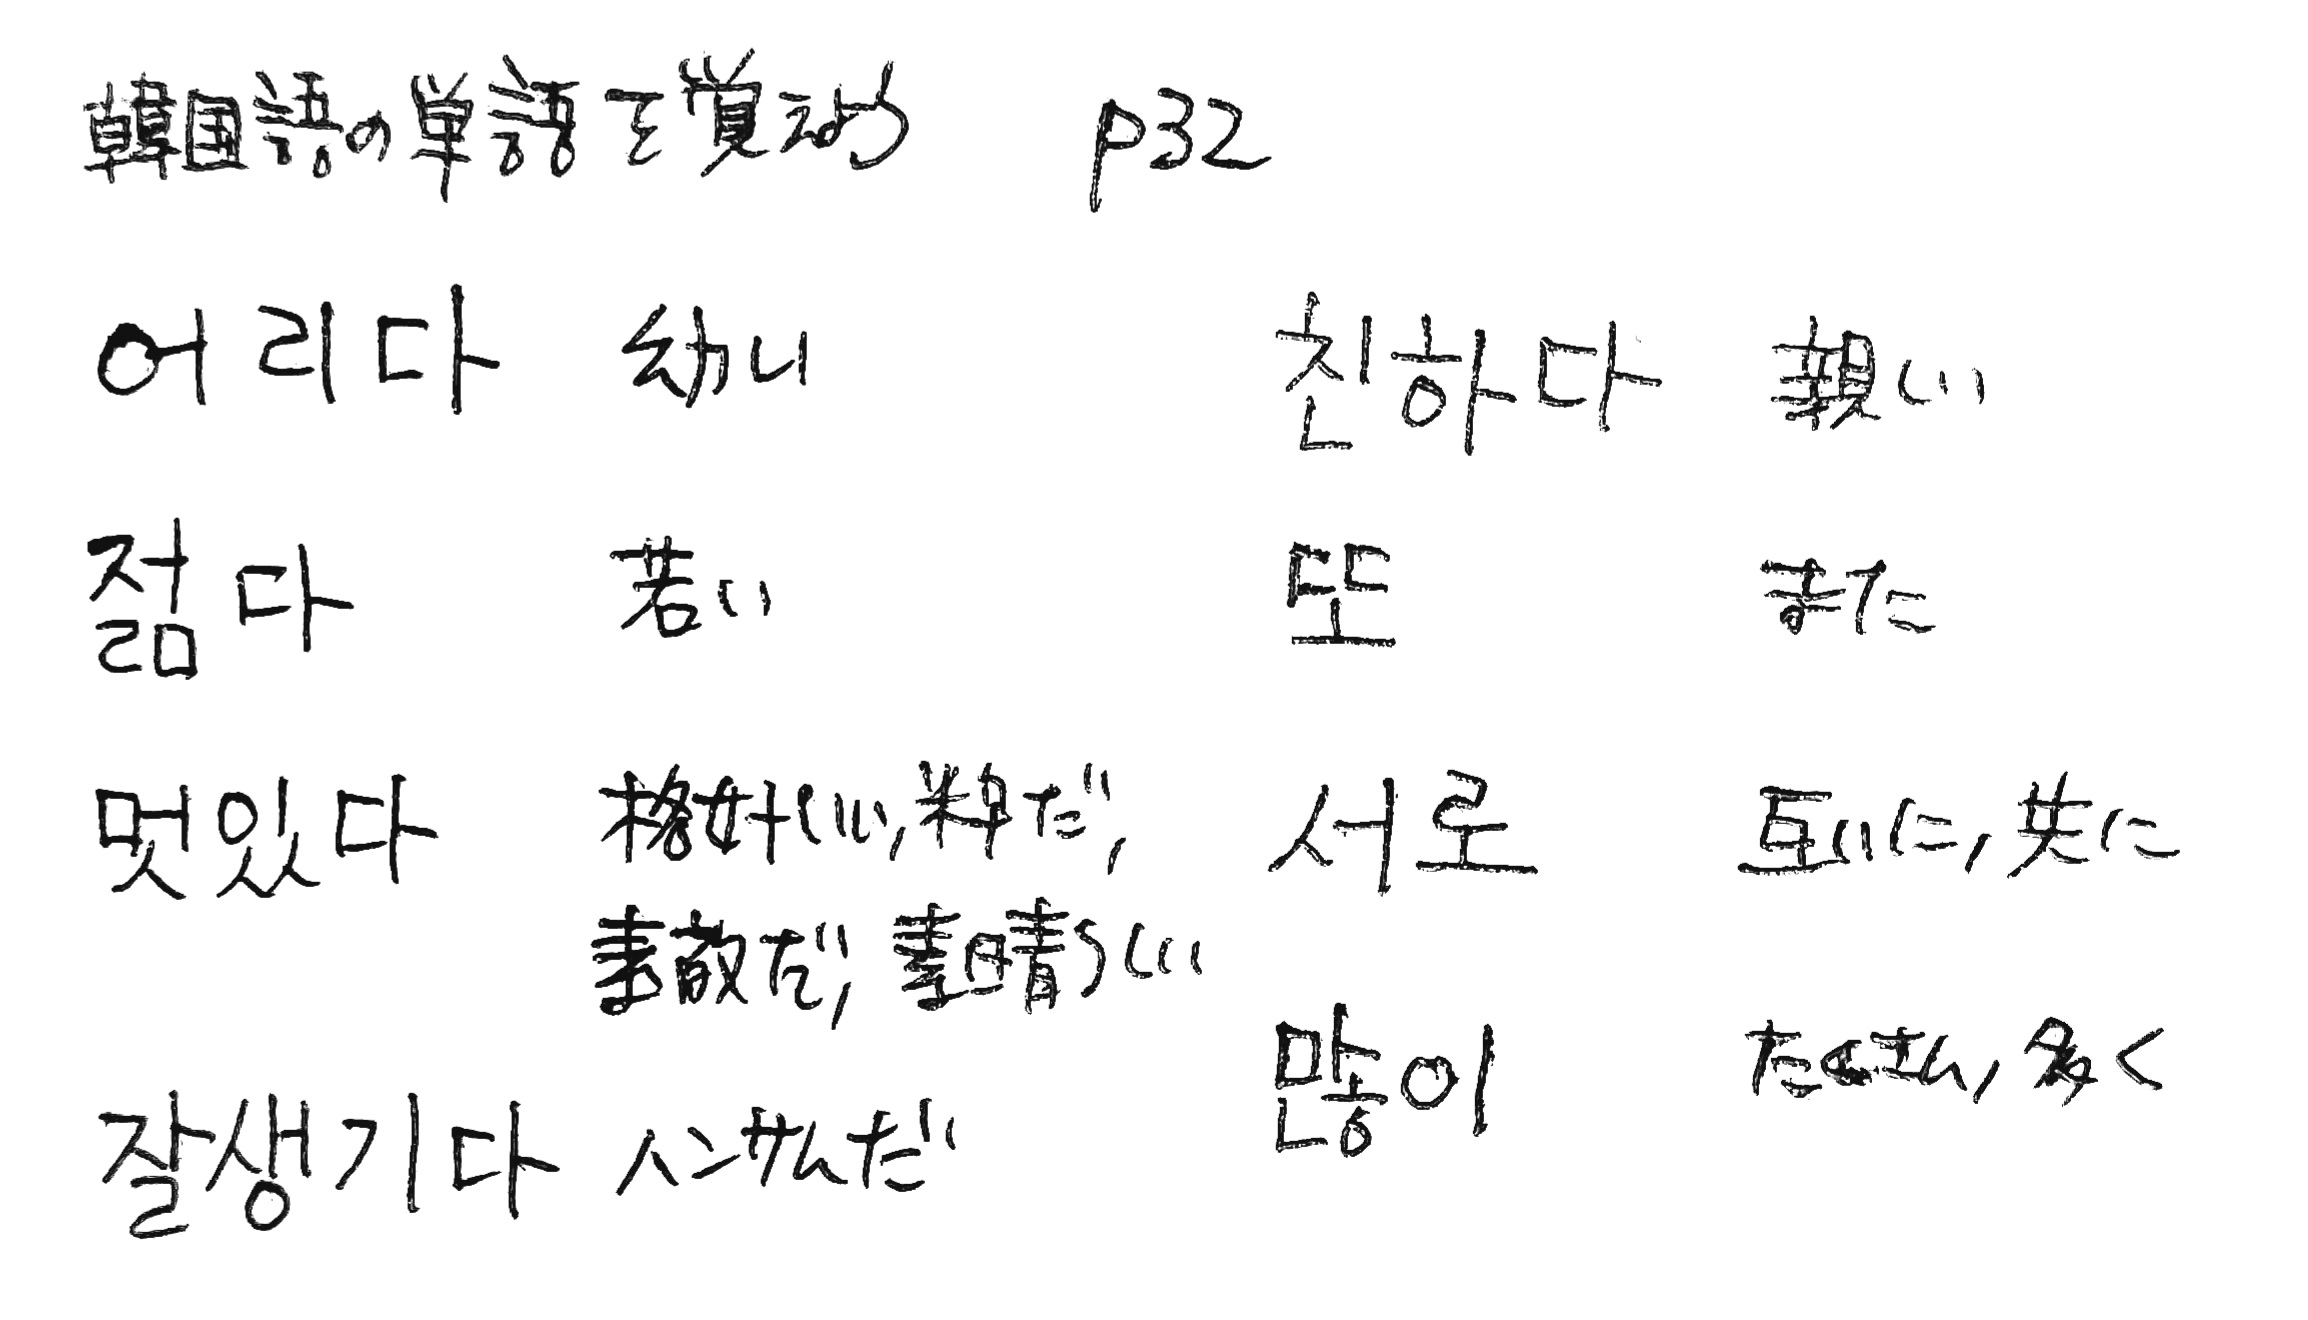 韓国語の単語を覚えよう p32
어리다 幼い
젊다 若い
멋있다 格好いい, 粋だ,
素敵だ, 素晴らしい
잘생기다 ハンサムだ
친하다 親しい
또 また
서로 互いに, 共に
많이 たくさん, 多く